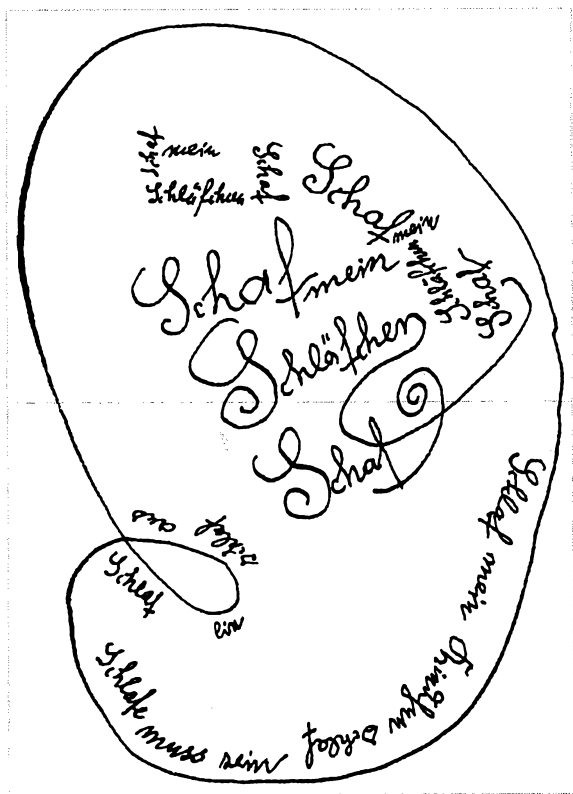 Schaf mein
Schläfchen Schaf
Schaf mein
Schläfchen
Schaf
Schaf mein
Schläfchen
Schaf
Schlaf aus
Schlaf ein
Schlafe muss sein
Schlaf mein
Schlaf